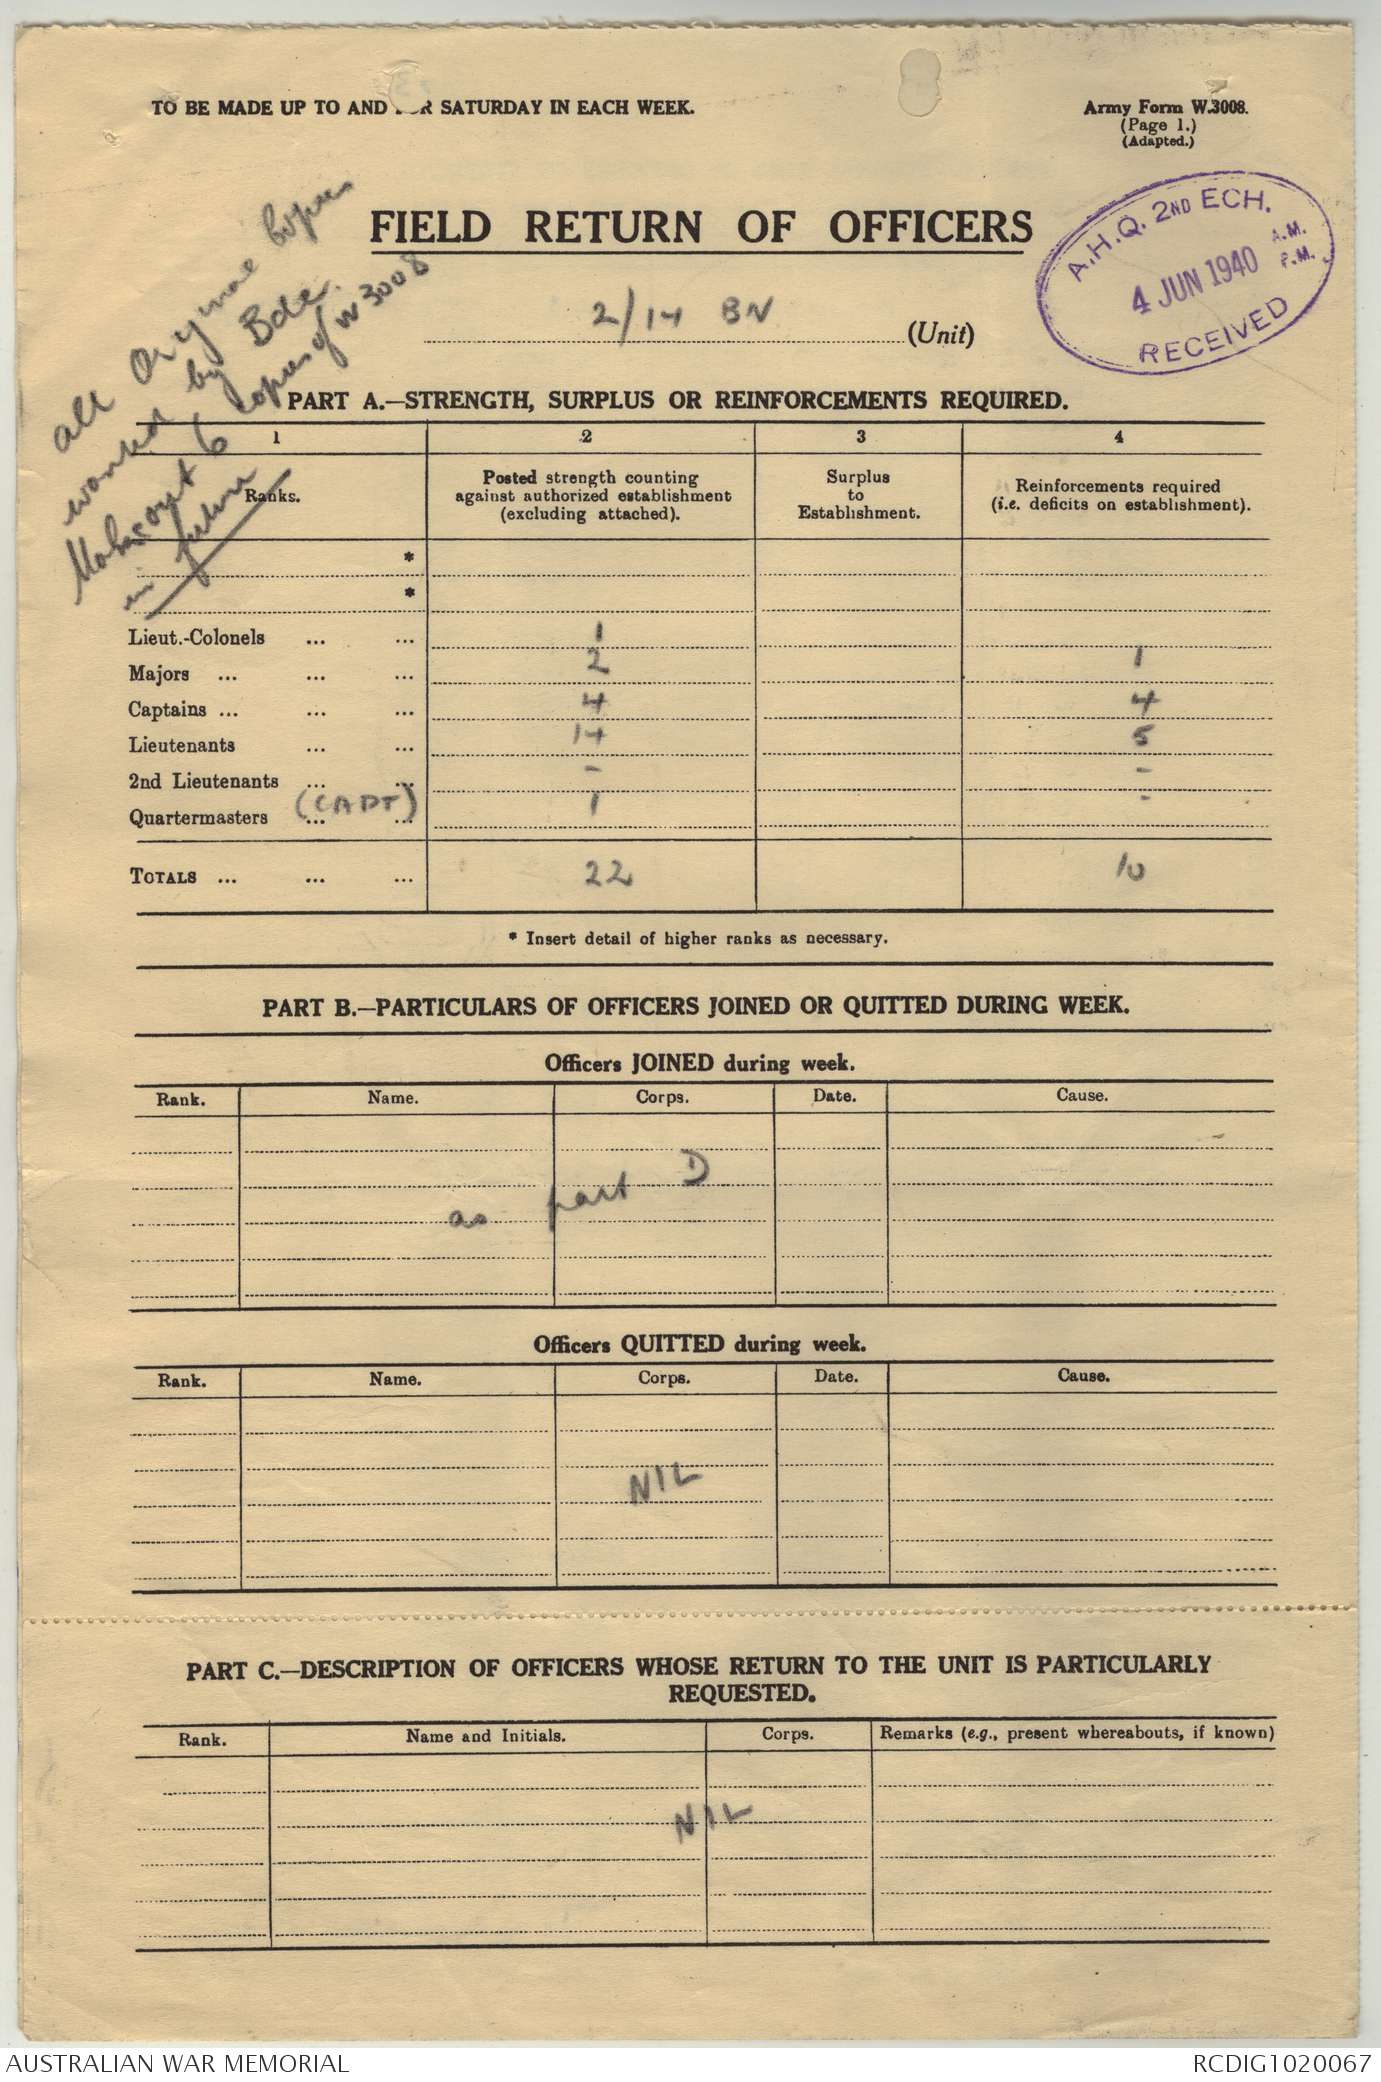 TO BE MADE UP TO AND FOR SATURDAY IN EACH WEEK.
Army Form W.3008.
(Page 1.)
(Adapted.)
All Original Copies
wanted by Bde.
Make out 6 copies of W 3008
in future
FIELD RETURN OF OFFICERS
A.H.Q. 2ND ECH.
4 JUN 1940
A.M.
P.M.
RECEIVED
2/14 BN (Unit)
PART A.—STRENGTH, SURPLUS OR REINFORCEMENTS REQUIRED.
1 2 3 4
Ranks.
Posted strength counting
against authorized establishment
(excluding attached).
Surplus
to
Establishment.
Reinforcements required
(i.e. deficits on establishment).
*
*
Lieut.-Colonels ... ... 1
Majors ... ... ... 2 1
Captains ... ... ... 4 4
Lieutenants ... ... 14 5
2nd Lieutenants ... ... - -
Quartermasters (CAPT) ... ... 1 -
TOTALS ... ... ... 22 10
* Insert detail of higher ranks as necessary.
PART B.—PARTICULARS OF OFFICERS JOINED OR QUITTED DURING WEEK.
Officers JOINED during week.
Rank. Name. Corps. Date. Cause.
as part D
Officers QUITTED during week.
Rank. Name. Corps. Date. Cause.
NIL
PART C.—DESCRIPTION OF OFFICERS WHOSE RETURN TO THE UNIT IS PARTICULARLY
REQUESTED.
Rank. Name and Initials. Corps. Remarks (e.g., present whereabouts, if known)
NIL
AUSTRALIAN WAR MEMORIAL
RCDIG1020067